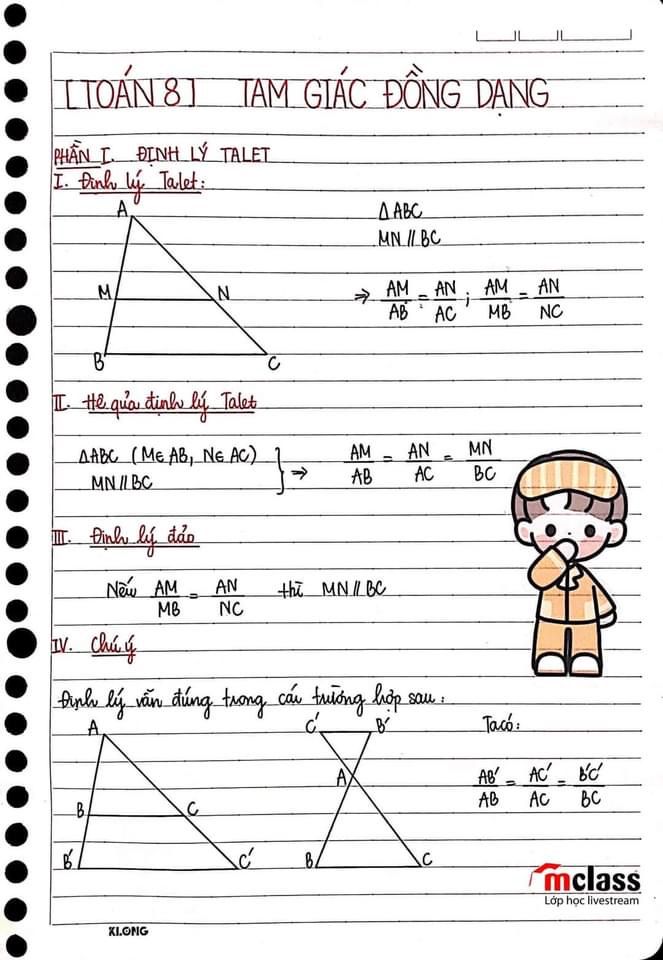 [TOÁN 8] TAM GIÁC ĐỒNG DẠNG
PHẦN I. ĐỊNH LÝ TALET
I. Định lý Talet:
A
M N
B C
Δ ABC
MN // BC
=> AM/AB = AN/AC ; AM/MB = AN/NC
II. Hê qủa định lý Talet
ΔABC (M∈AB, N∈AC)
MN // BC
} => AM/AB = AN/AC = MN/BC
III. Định lý đảo
Nếu AM/MB = AN/NC thì MN // BC
IV. Chú ý
Định lý vẫn đúng trong cái trường hợp sau:
A
B C
B' C'
C' B'
A
B C
Ta có:
AB'/AB = AC'/AC = B'C'/BC
mclass
Lớp học livestream
KLONG